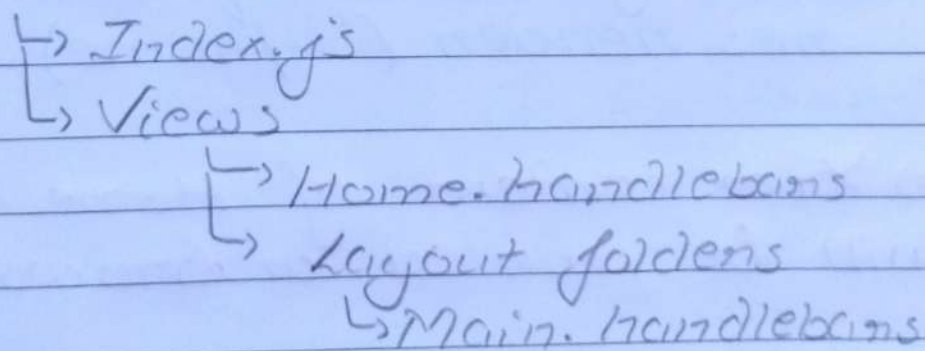 ↳ Index.js
↳ Views
↳ Home.handlebars
↳ Layout folders
↳ Main.handlebars